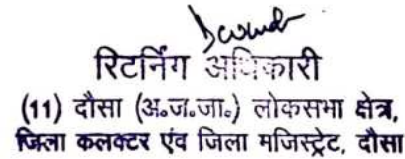 रिटर्निंग अधिकारी
(11) दौसा (अ०ज०जा०) लोकसभा क्षेत्र,
जिला कलक्टर एंव जिला मजिस्ट्रेट, दौसा